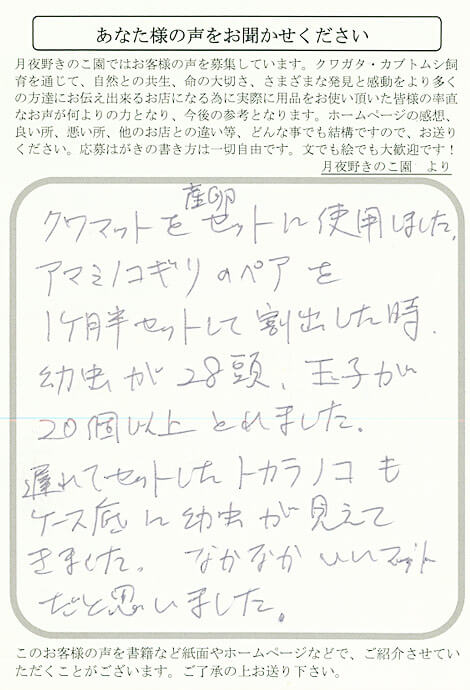 あなた様の声をお聞かせください
月夜野きのこ園ではお客様の声を募集しています。クワガタ・カブトムシ飼
育を通じて、自然との共生、命の大切さ、さまざまな発見と感動をより多く
の方達にお伝え出来るお店になる為に実際に用品をお使い頂いた皆様の率直
なお声が何よりの力となり、今後の参考となります。ホームページの感想、
良い所、悪い所、他のお店との違い等、どんな事でも結構ですので、お送り
ください。応募はがきの書き方は一切自由です。文でも絵でも大歓迎です！
月夜野きのこ園　より
産卵
クワマットをセットに使用しました。
アマミノコギリのペアを
1ケ月半セットして割出した時、
幼虫が28頭、玉子が
20個以上とれました。
遅れてセットしたトカラノコも
ケース底に幼虫が見えて
きました。なかなかいいマット
だと思いました。
このお客様の声を書籍など紙面やホームページなどで、ご紹介させてい
ただくことがございます。ご了承の上お送り下さい。